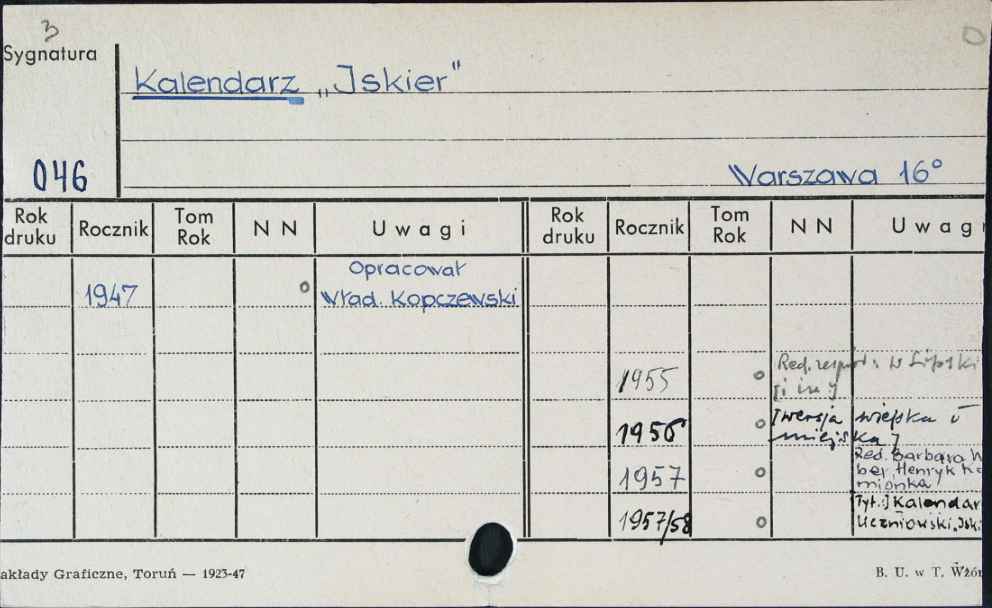 3
Sygnatura
Kalendarz „Iskier"
046
Warszawa 16°
Rok druku Rocznik Tom Rok N N Uwagi Rok druku Rocznik Tom Rok N N Uwagi
1947 o Opracował
Wład. Kopczewski
1955 o Red. w Lipski
[i in.]
1956 o [wersja wiejska i
miejska]
1957 o Red. Barbara W
ber, Henryk Ka
mionka
1957/58 o Tyt.: [Kalendar
Uczniowski „Iski
akłady Graficzne, Toruń — 1923-47
B. U. w T. Wzór